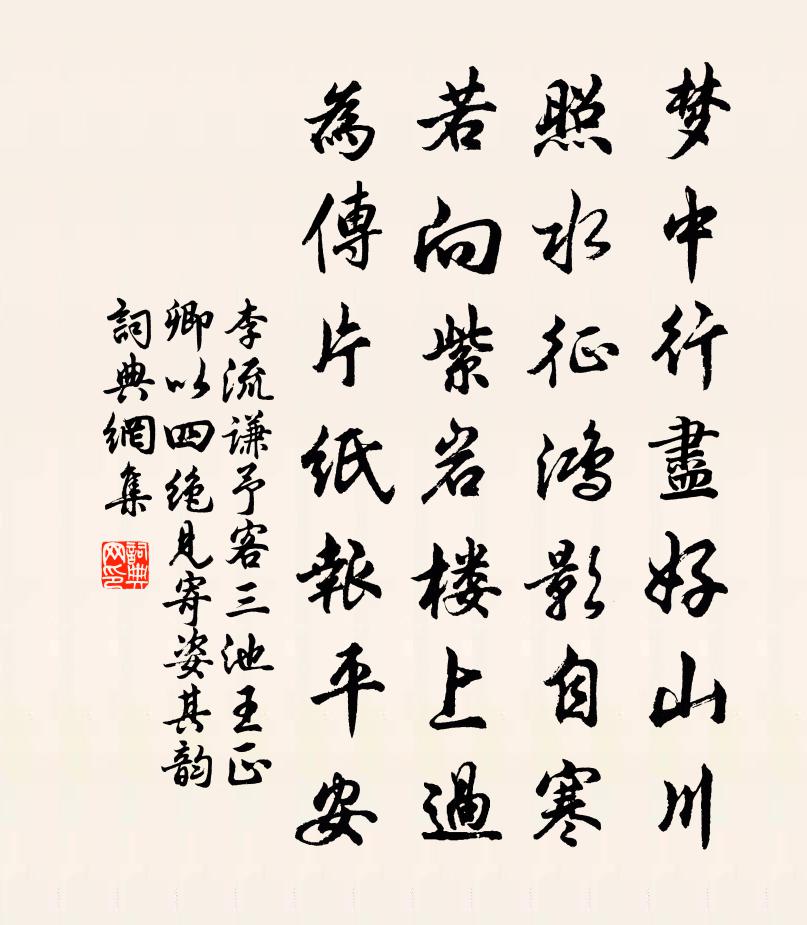 梦中行盡好山川
照水征鴻影自寒
若向紫岩楼上過
為傳片紙報平安
李流谦予客三池王正
卿以四绝見寄姿其韵
詞典網集
詞典网印